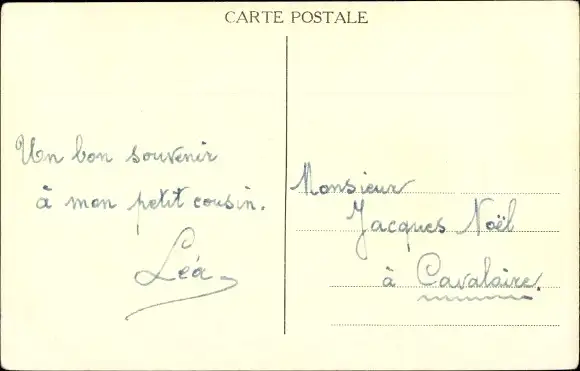 CARTE POSTALE
Un bon souvenir
à mon petit cousin.
Léa
Monsieur
Jacques Noël
à Cavalaire.